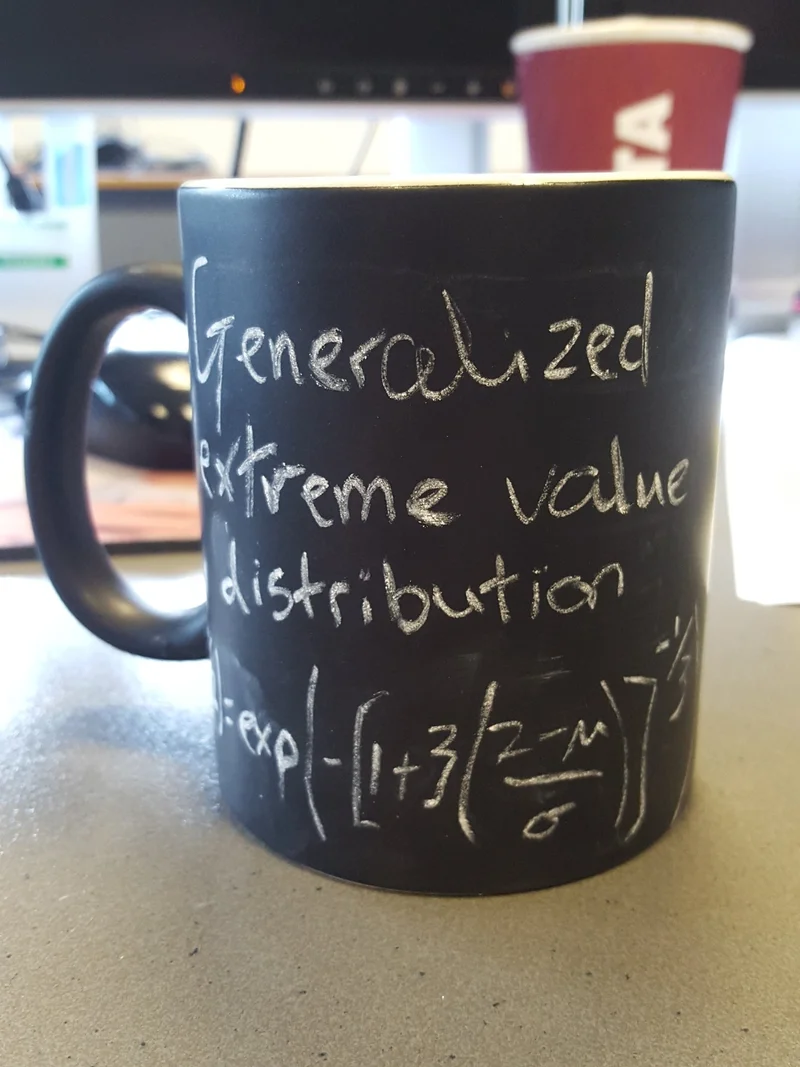 Generalized
extreme value
distribution
)=exp(-[1+ξ(z-μ/σ)]^-1/ξ)
TA